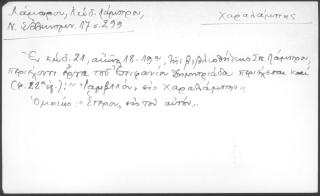 Λάμπρου, Κώδ. Λάμπρου,
Ν. Ἑλληνομν. 17 σ. 299
Χαραλάμπης
Ἐν κώδ. 21, αἰῶνος 18-19ου, τῆς βιβλιοθήκης Σπ. Λάμπρου,
περιέχοντι ἔργα τοῦ Ἐπιφανίου Δημητριάδου περιέχεται καὶ
(φ. 22α κἑ.): "Ἰαμβικὸν εἰς Χαραλάμπην"
Ὁμοίως: "Ἕτερον, εἰς τὸν αὐτόν"